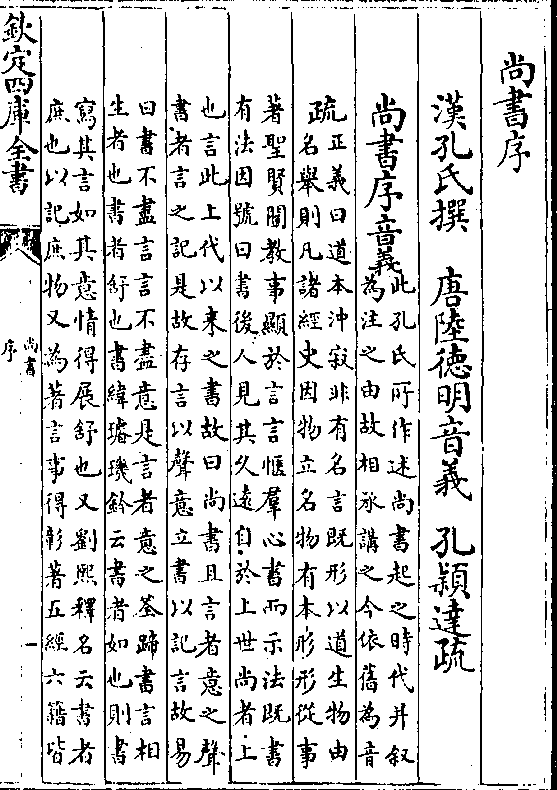 尚書序
漢孔氏撰　唐陸德明音義　孔穎達疏
尚書序音義此孔氏所作述尚書起之時代并叙
為注之由故相承講之今依舊為音
疏正義曰道本沖寂非有名言既形以道生物由
名舉則凡諸經史因物立名物有本形形從事
著聖賢闡教事顯於言言愜羣心書而示法既書
有法因號曰書後人見其久遠自於上世尚者上
也言此上代以來之書故曰尚書且言者意之聲
書者言之記是故存言以聲意立書以記言故易
曰書不盡言言不盡意是言者意之筌蹄書言相
生者也書者舒也書緯璿璣鈐云書者如也則書
寫其言如其意情得展舒也又劉熙釋名云書者
庶也以記庶物又為著言事得彰著五經六籍皆
欽定四庫全書
尚書
序
一